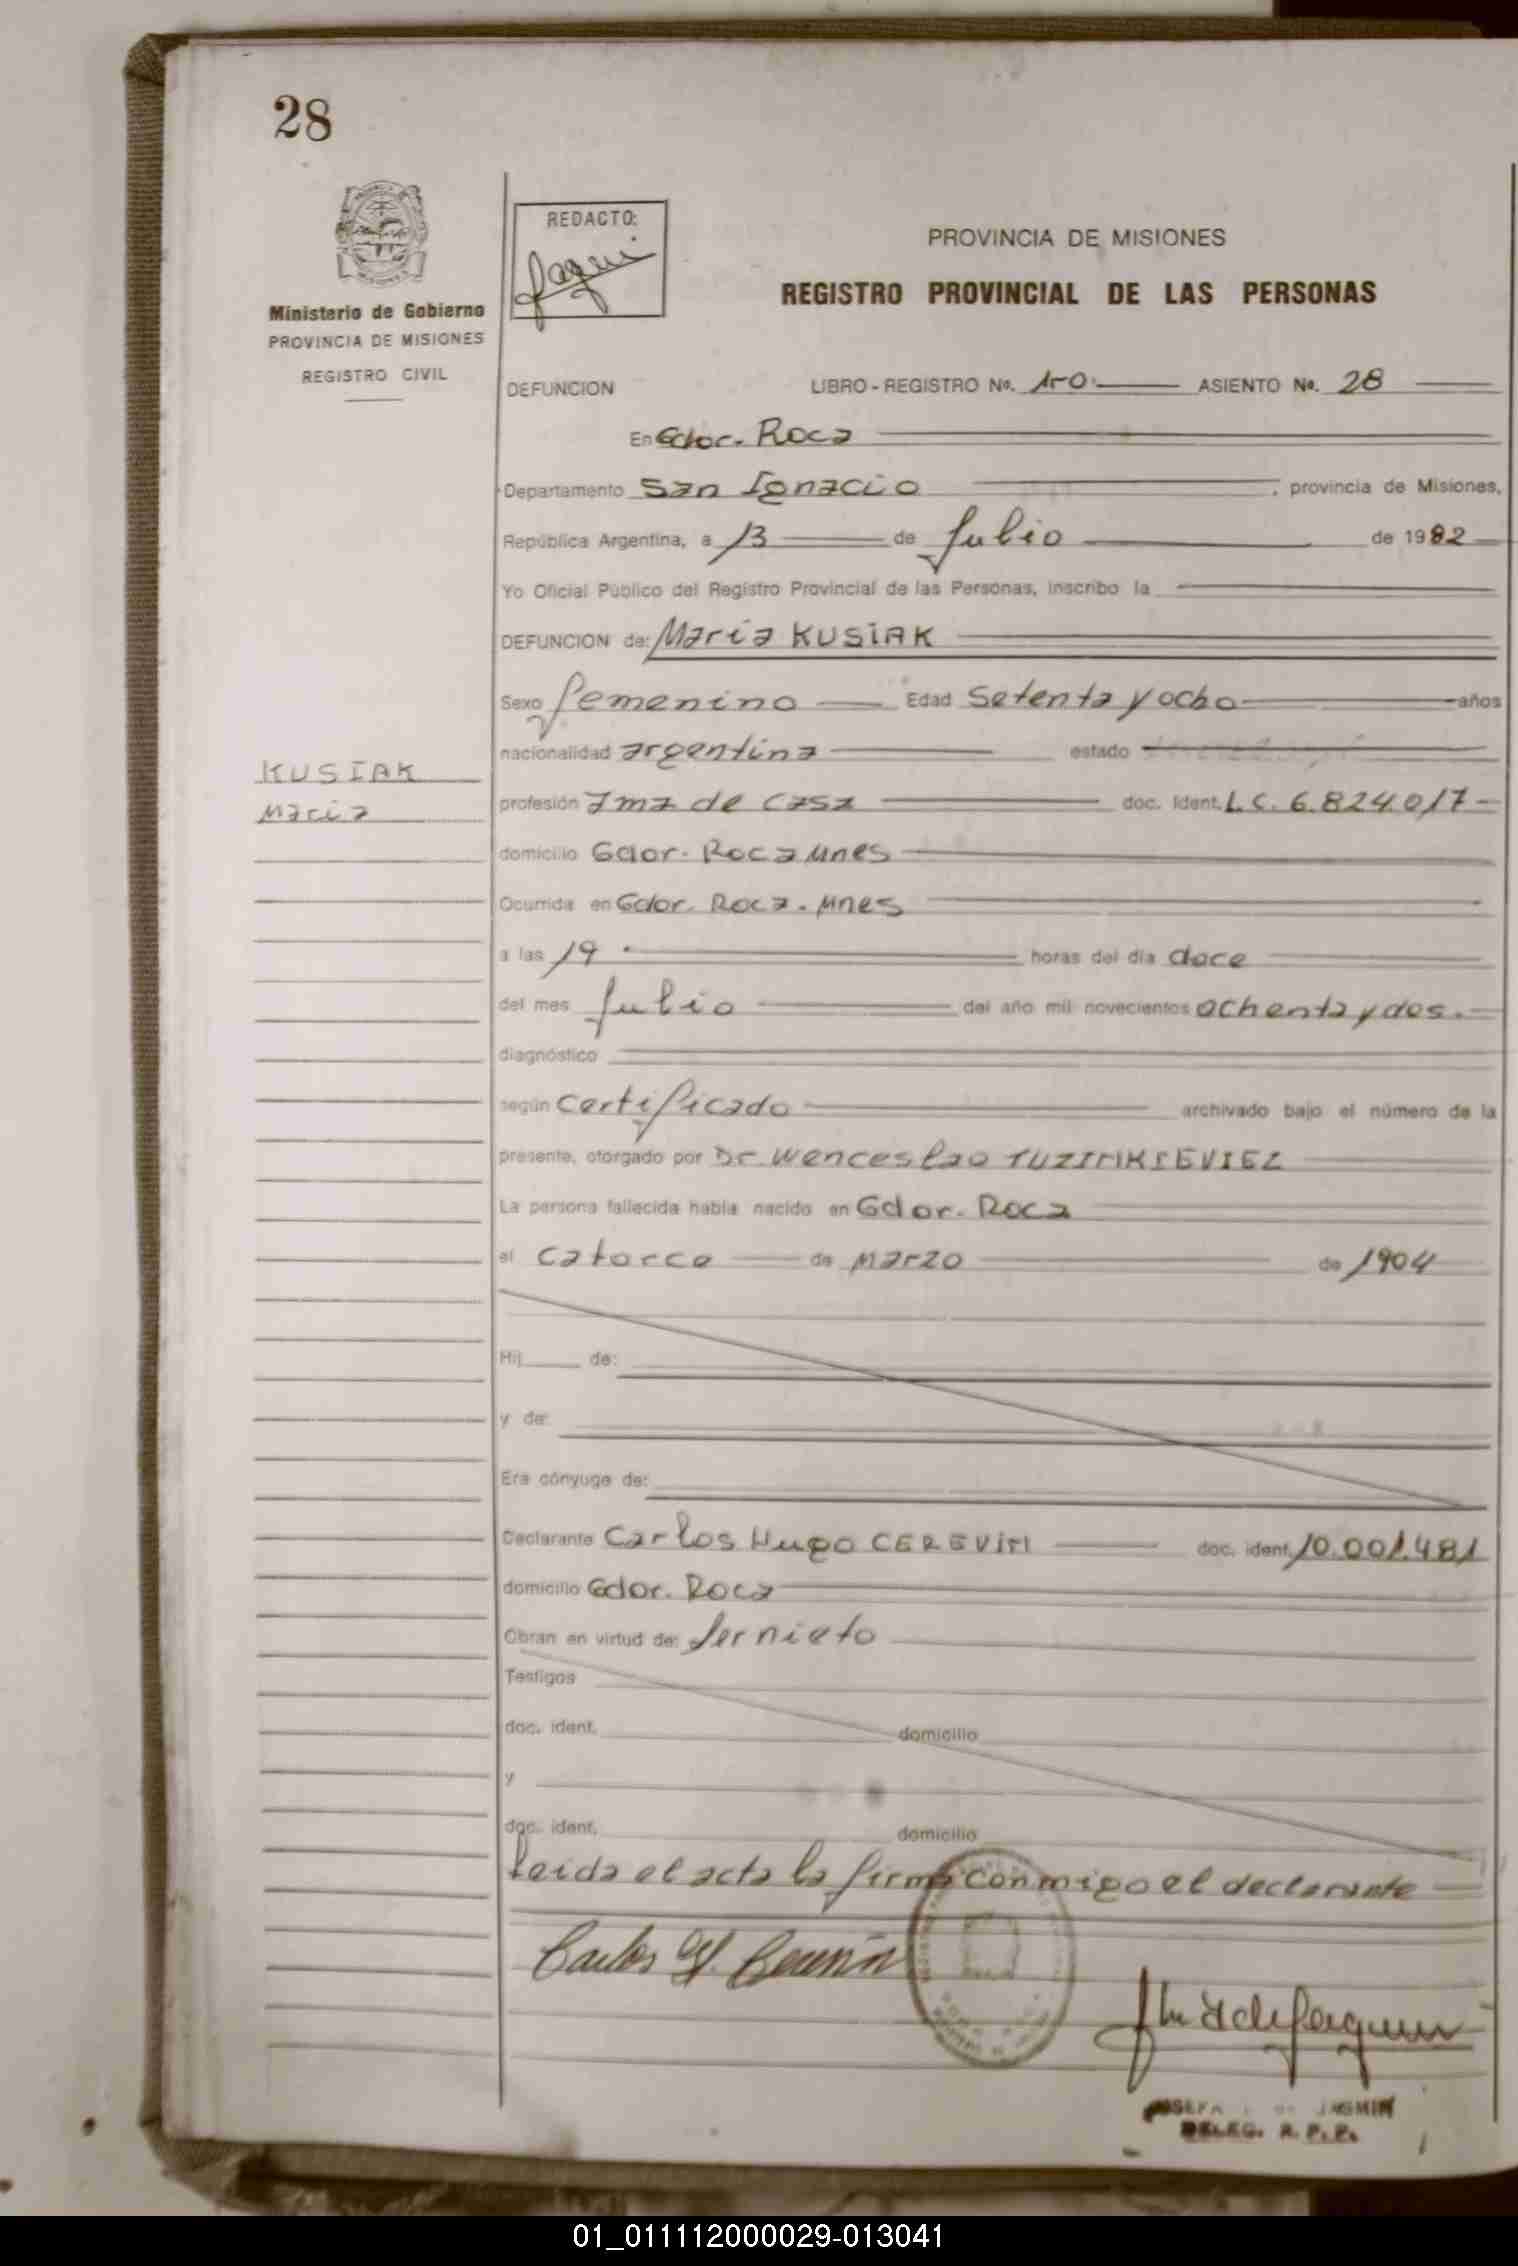 28
Ministerio de Gobierno
PROVINCIA DE MISIONES
REGISTRO CIVIL
REDACTO:
PROVINCIA DE MISIONES
REGISTRO PROVINCIAL DE LAS PERSONAS
DEFUNCION LIBRO-REGISTRO No. 1ro. ASIENTO No. 28
En Gdor. Roca
Departamento San Ignacio, provincia de Misiones,
República Argentina, a 13 de Julio de 1982
Yo Oficial Público del Registro Provincial de las Personas, inscribo la
DEFUNCION de: Maria KUSIAK
Sexo femenino Edad Setenta y ocho años
nacionalidad argentina estado
KUSIAK
Maria
profesión Ama de Casa doc. ident. L.C. 6.824.017
domicilio Gdor. Roca Mnes
Ocurrida en Gdor. Roca. Mnes
a las 19 horas del día doce
del mes Julio del año mil novecientos ochenta y dos.
diagnóstico
según Certificado archivado bajo el número de la
presente, otorgado por Dr. Wenceslao
La persona fallecida había nacido en Gdor. Roca
el Catorce de Marzo de 1904
Hij de:
y de:
Era cónyuge de:
Declarante Carlos Hugo CEREVIN doc. ident. 10.001.481
domicilio Gdor. Roca
Obran en virtud de: Ser nieto
Testigos
doc. ident. domicilio
y
doc. ident. domicilio
Leida el acta la firma conmigo el declarante
Carlos H. Cerevin
JASMIN
DELEG. R. P. P.
01_011112000029-013041